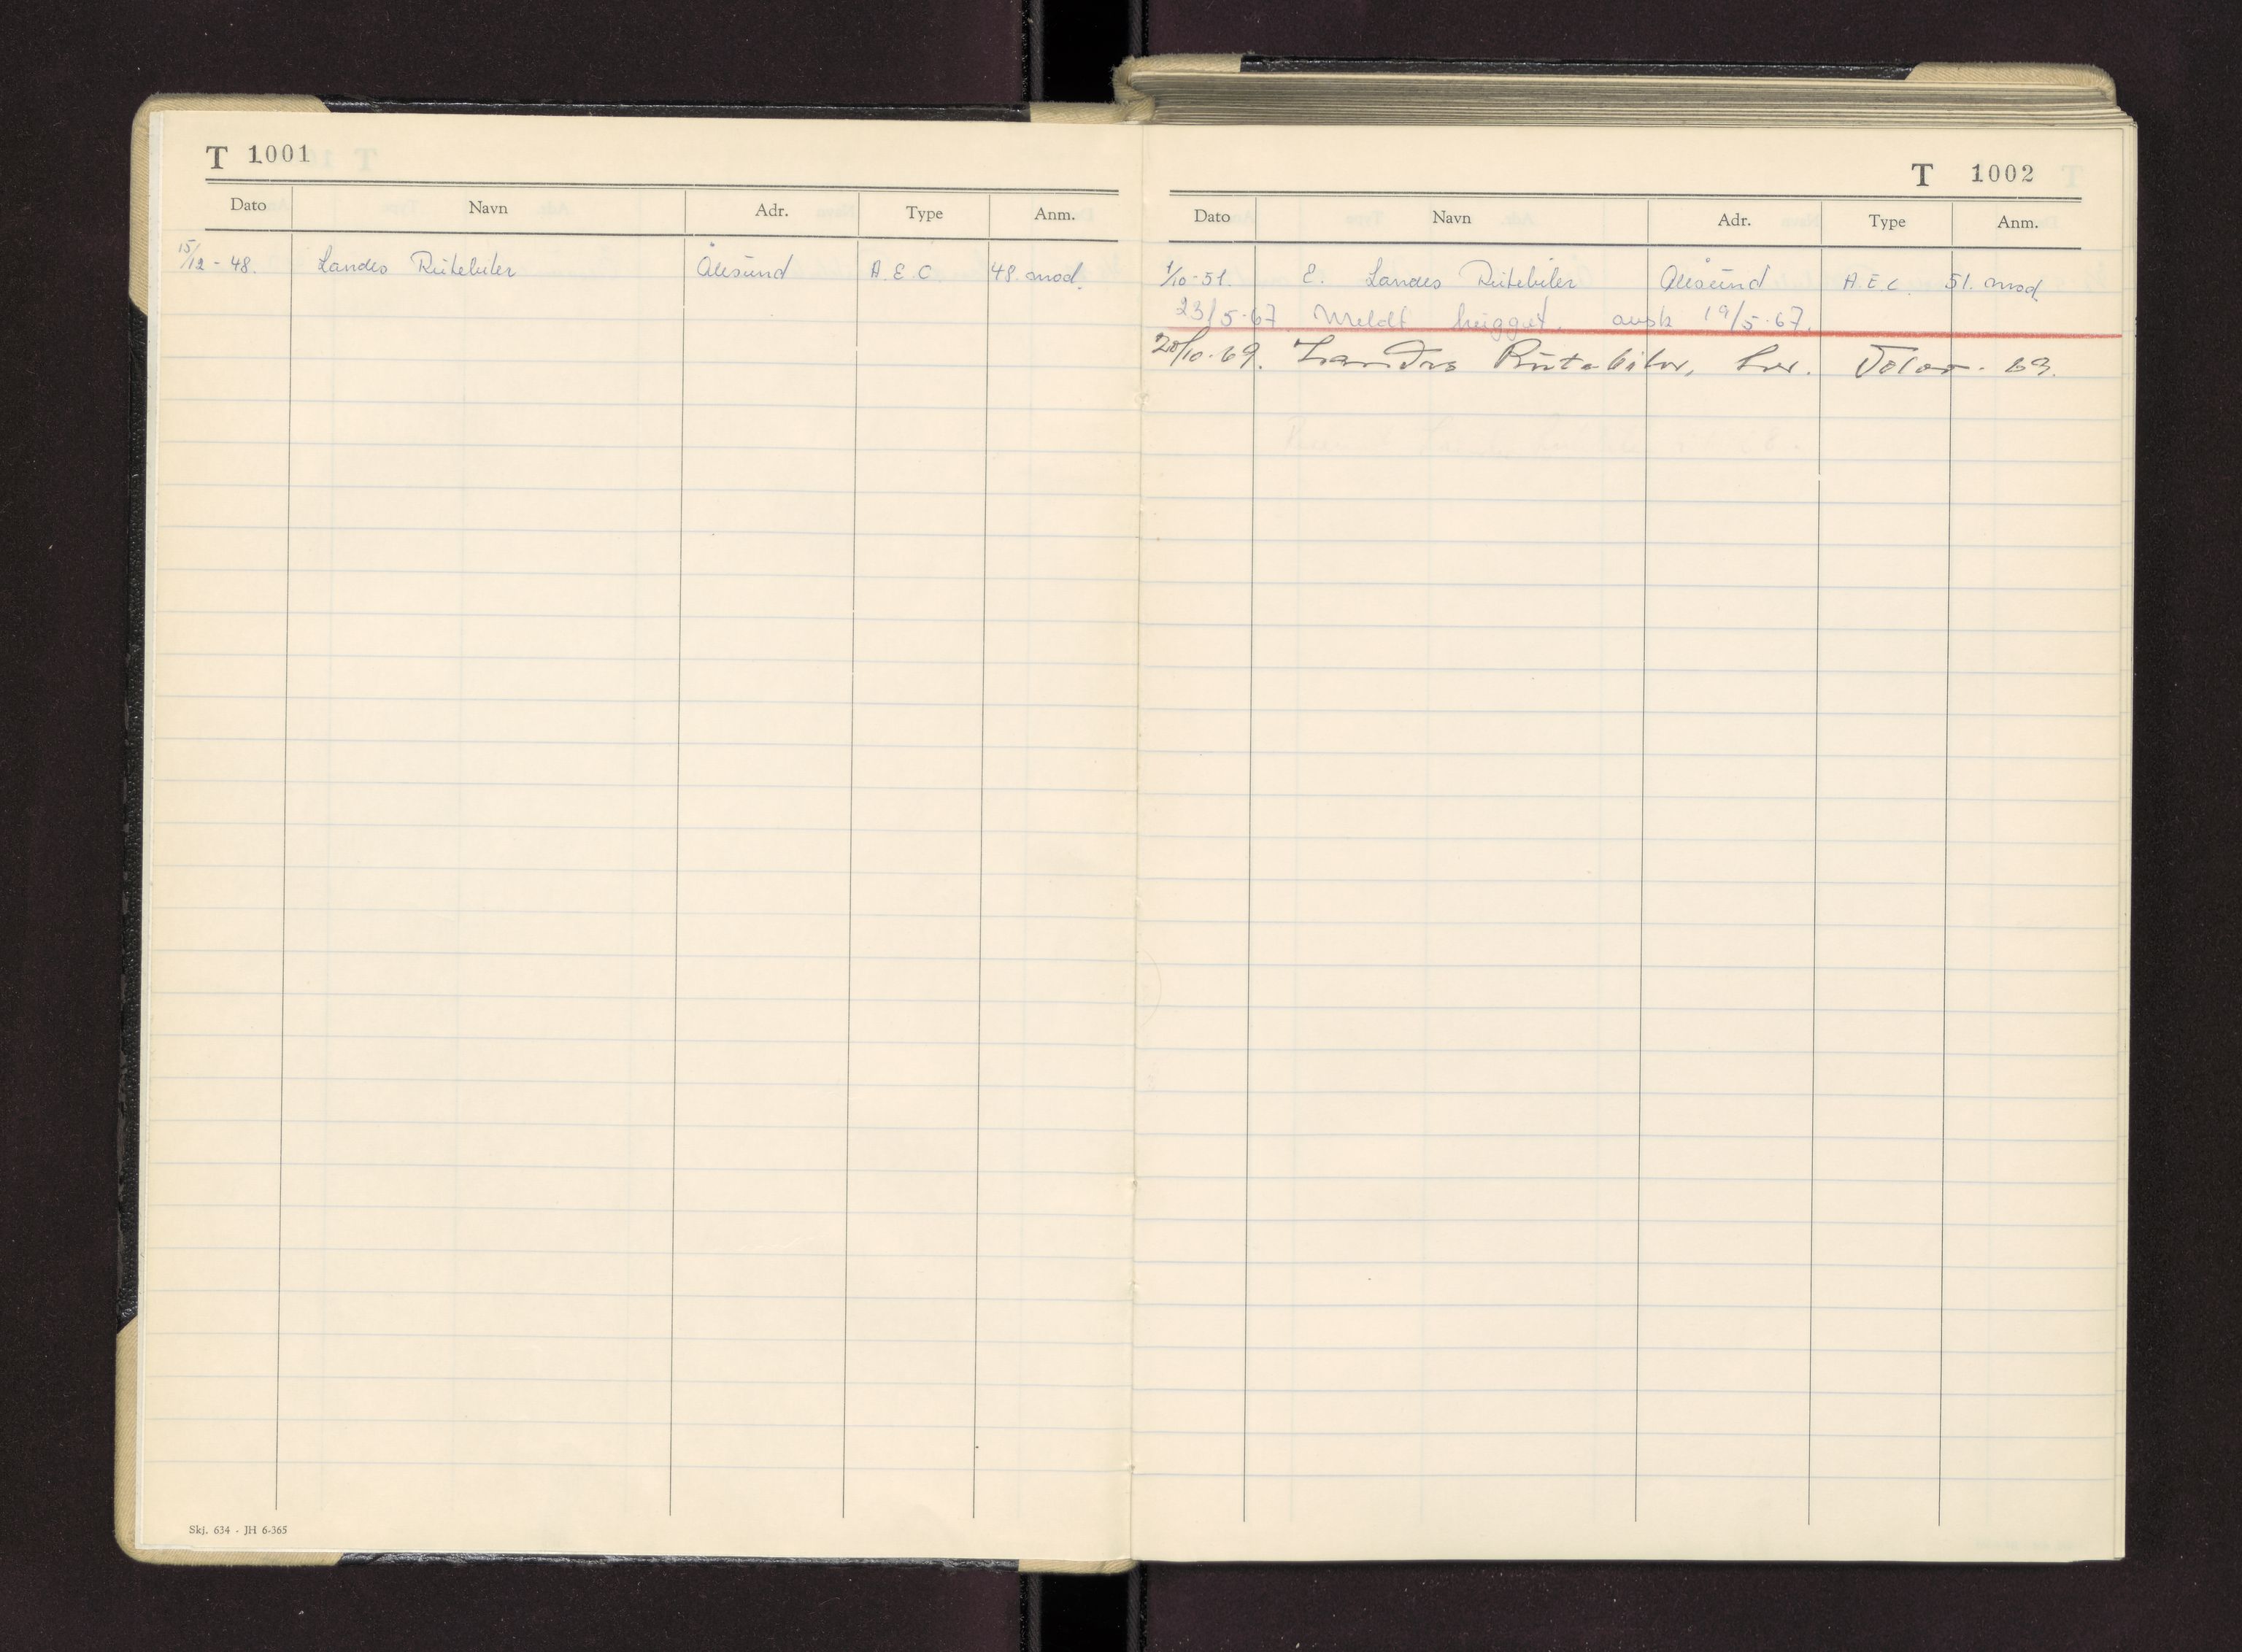 T 1001
Dato Navn Adr. Type Anm.
15/12 - 48. Landes Rutebiler Ålesund A.E.C. 48. mod.
Skj. 634 - JH 6-365
T 1002
Dato Navn Adr. Type Anm.
1/10-51. E. Landes Rutebiler Ålesund A.E.C. 51. mod.
23/5-67 Meldt hugget. 19/5-67.
20/10-69. Landes Rutebiler, her. Volvo - 69.